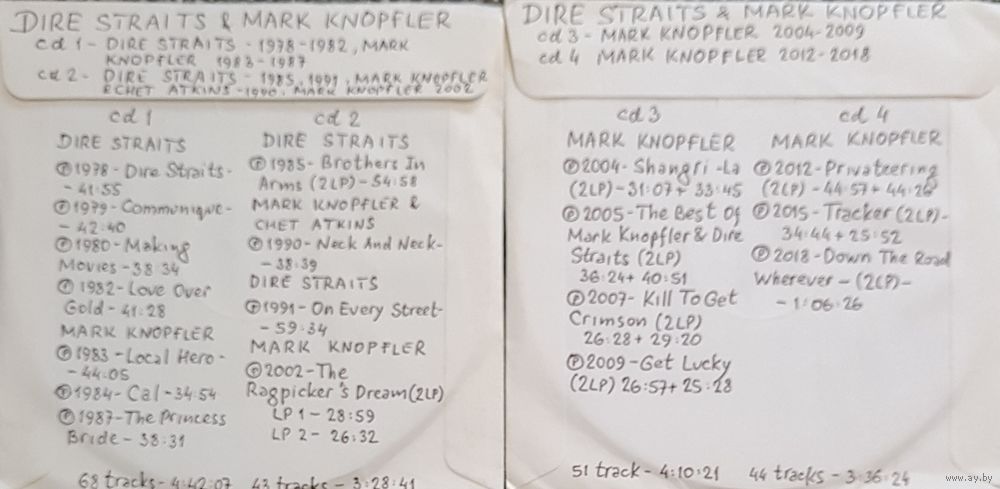 DIRE STRAITS & MARK KNOPFLER
cd 1 - DIRE STRAITS - 1978-1982, MARK
KNOPFLER 1983-1987
cd 2 - DIRE STRAITS - 1985, 1991, MARK KNOPFLER
&CHET ATKINS-1990, MARK KNOPFLER 2002
cd 1
DIRE STRAITS
℗1978- Dire Straits-
- 41:55
℗1979-Communique-
- 42:40
℗1980-Making
Movies-38:34
℗1982-Love Over
Gold-41:28
MARK KNOPFLER
℗1983-Local Hero-
- 44:05
℗1984-Cal-34:54
℗1987-The Princess
Bride-38:31
68 tracks-4:42:07
cd 2
DIRE STRAITS
℗1985-Brothers In
Arms (2LP)-54:58
MARK KNOPFLER &
CHET ATKINS
℗1990-Neck And Neck-
- 38:39
DIRE STRAITS
℗1991-On Every Street-
- 59:34
MARK KNOPFLER
℗2002-The
Ragpicker's Dream(2LP)
LP 1-28:59
LP 2-26:32
43 tracks-3:28:41
DIRE STRAITS & MARK KNOPFLER
cd 3- MARK KNOPFLER 2004-2009
cd 4 MARK KNOPFLER 2012-2018
cd 3
MARK KNOPFLER
℗2004-Shangri-La
(2LP)-31:07+ 33:45
℗2005-The Best Of
Mark Knopfler & Dire
Straits (2LP)
36:24+ 40:51
℗2007-Kill To Get
Crimson (2LP)
26:28+ 29:20
℗2009-Get Lucky
(2LP) 26:57+ 25:28
51 track-4:10:21
cd 4
MARK KNOPFLER
℗2012-Privateering
(2LP)-44:57+
℗2015-Tracker (2LP)-
34:44+25:52
℗2018-Down The Road
Wherever-(2LP)-
-1:06:26
44 tracks-3:36:24
www.ay.by